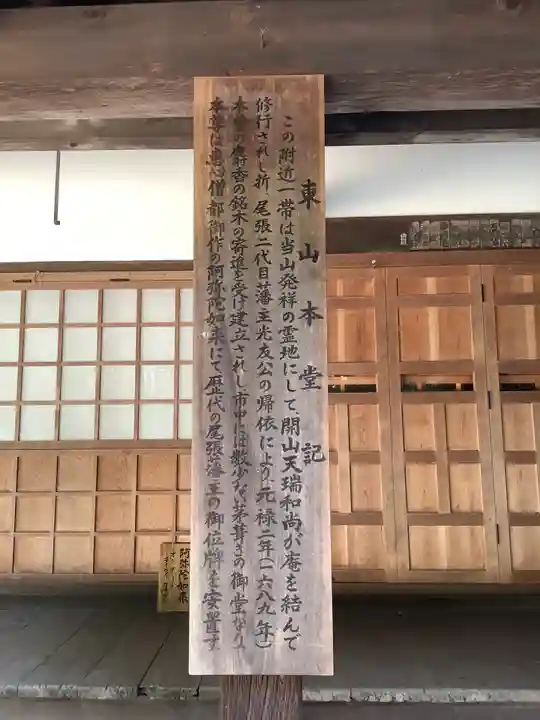 東山本堂記
この附近一帯は当山発祥の霊地にして、開山天瑞和尚が庵を結んで
修行されし折、尾張二代目藩主光友公の帰依により元禄二年(一六八九年)
本尊の麝香の銘木の寄進を受け建立されし市中には数少ない茅葺きの御堂なり、
本尊は恵心僧都御作の阿弥陀如来にて歴代の尾張藩主の御位牌を安置す
阿弥陀如来